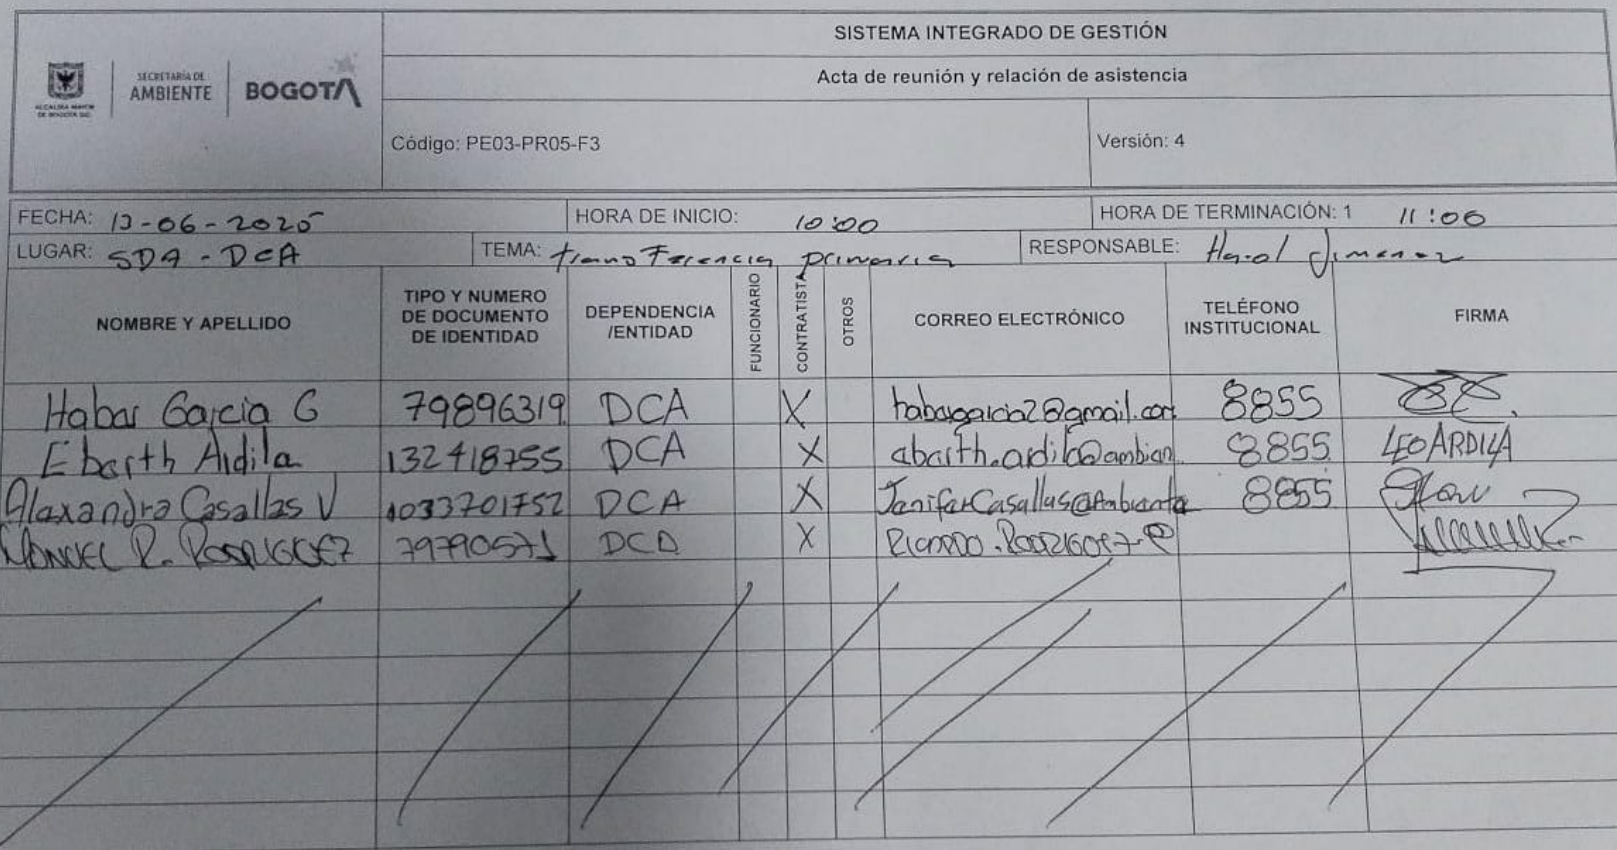 SISTEMA INTEGRADO DE GESTIÓN
ALCALDÍA MAYOR DE BOGOTÁ D.C.
SECRETARÍA DE AMBIENTE
BOGOTÁ
Acta de reunión y relación de asistencia
Código: PE03-PR05-F3 Versión: 4
FECHA: 13-06-2025 HORA DE INICIO: 10:00 HORA DE TERMINACIÓN: 1 11:00
LUGAR: SDA - DCA TEMA: transferencia primaria RESPONSABLE: Harol Jimenez
NOMBRE Y APELLIDO TIPO Y NUMERO DE DOCUMENTO DE IDENTIDAD DEPENDENCIA /ENTIDAD FUNCIONARIO CONTRATISTA OTROS CORREO ELECTRÓNICO TELÉFONO INSTITUCIONAL FIRMA
Habar Garcia G 79896319 DCA X habargarcia2@gmail.com 8855
Ebarth Ardila 132418755 DCA X abarth.ardila@ambian 8855 LEO ARDILA
Alaxandra Casallas V 1033701752 DCA X JeniferCasallas@Ambiante 8855
MANUEL R. RODRIGUEZ 79790571 DCA X RICARDO.RODRIGUEZ@